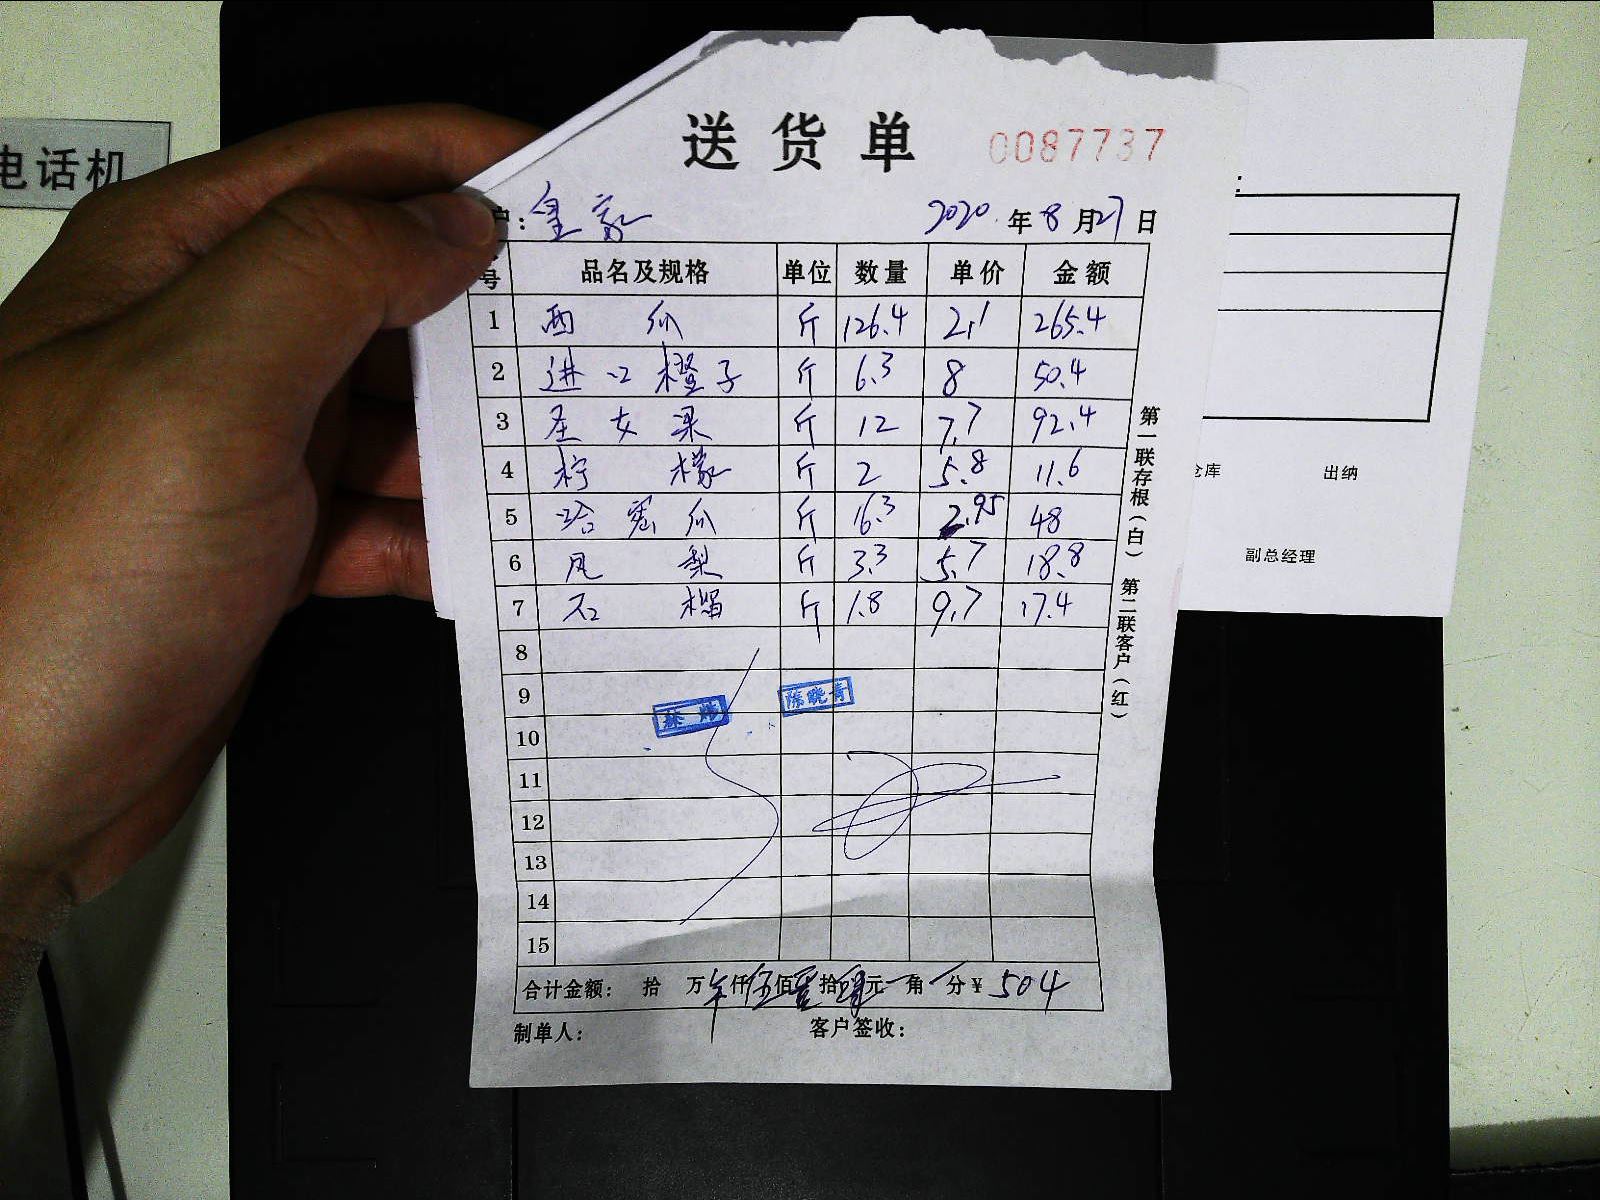 电话机
送货单 0087737
户: 皇家 2020年8月27日
号 品名及规格 单位 数量 单价 金额
1 西瓜 斤 126.4 2.1 265.4
2 进口橙子 斤 6.3 8 50.4
3 圣女果 斤 12 7.7 92.4
4 柠檬 斤 2 5.8 11.6
5 哈密瓜 斤 16.3 2.95 48
6 凤梨 斤 3.3 5.7 18.8
7 石榴 斤 1.8 9.7 17.4
8
9 陈晓青
10
11
12
13
14
15
合计金额: 拾 万 仟伍佰 拾 元 角 分¥ 504
制单人: 客户签收:
第一联存根(白) 第二联客户(红)
仓库 出纳
副总经理